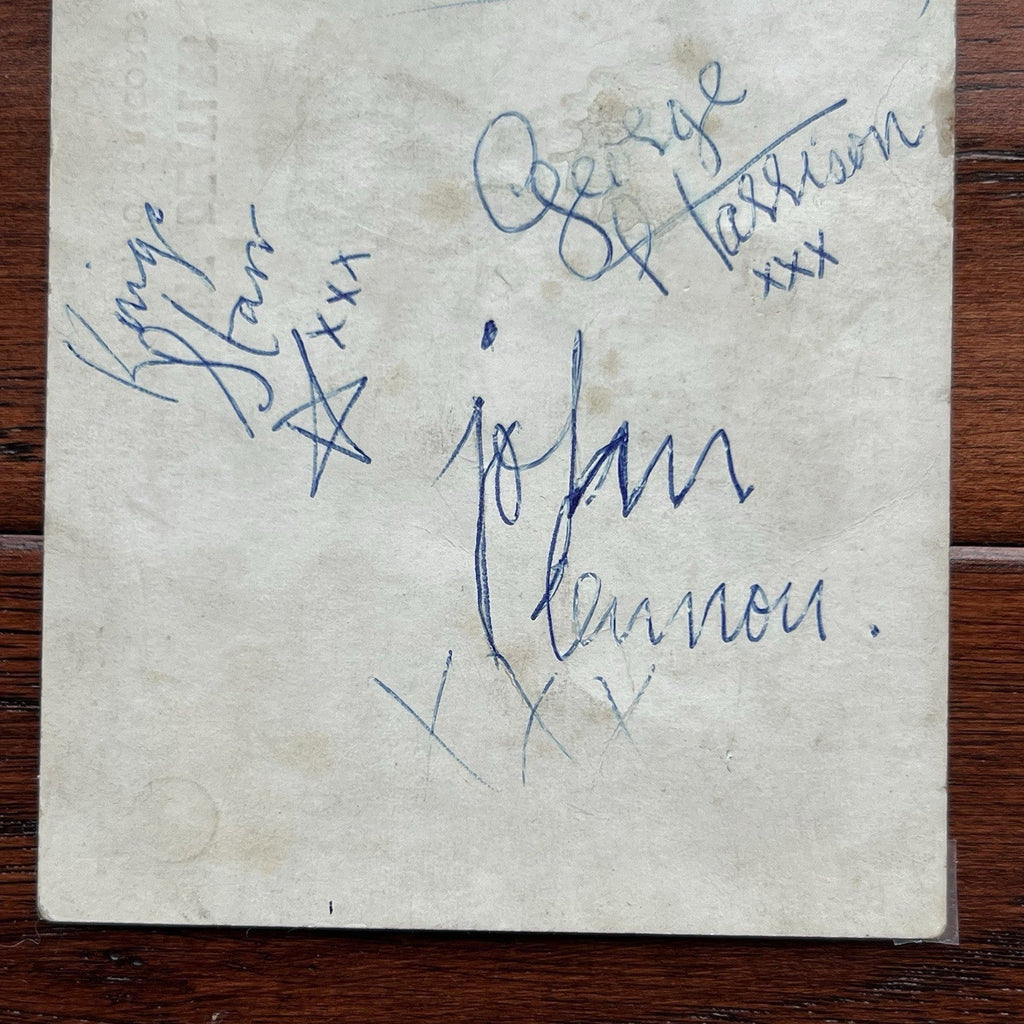 George
Harrison
xxx
Ringo
Starr
xxx
john
lennon.
xxx